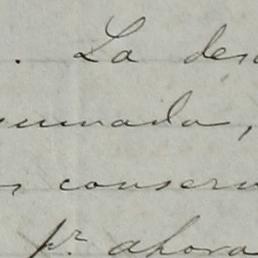 . La des
sumada,
s conserv
pr. ahora